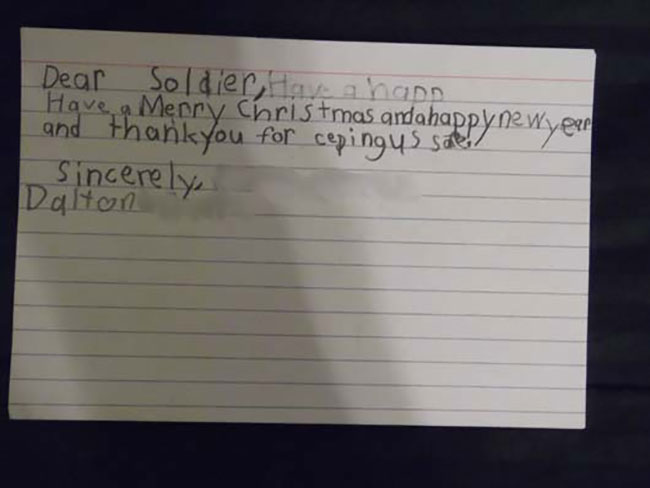 Dear Soldier, Have a happ
Have a Merry Christmas and a happy new year
and thank you for ceping us safe.
Sincerely,
Dalton